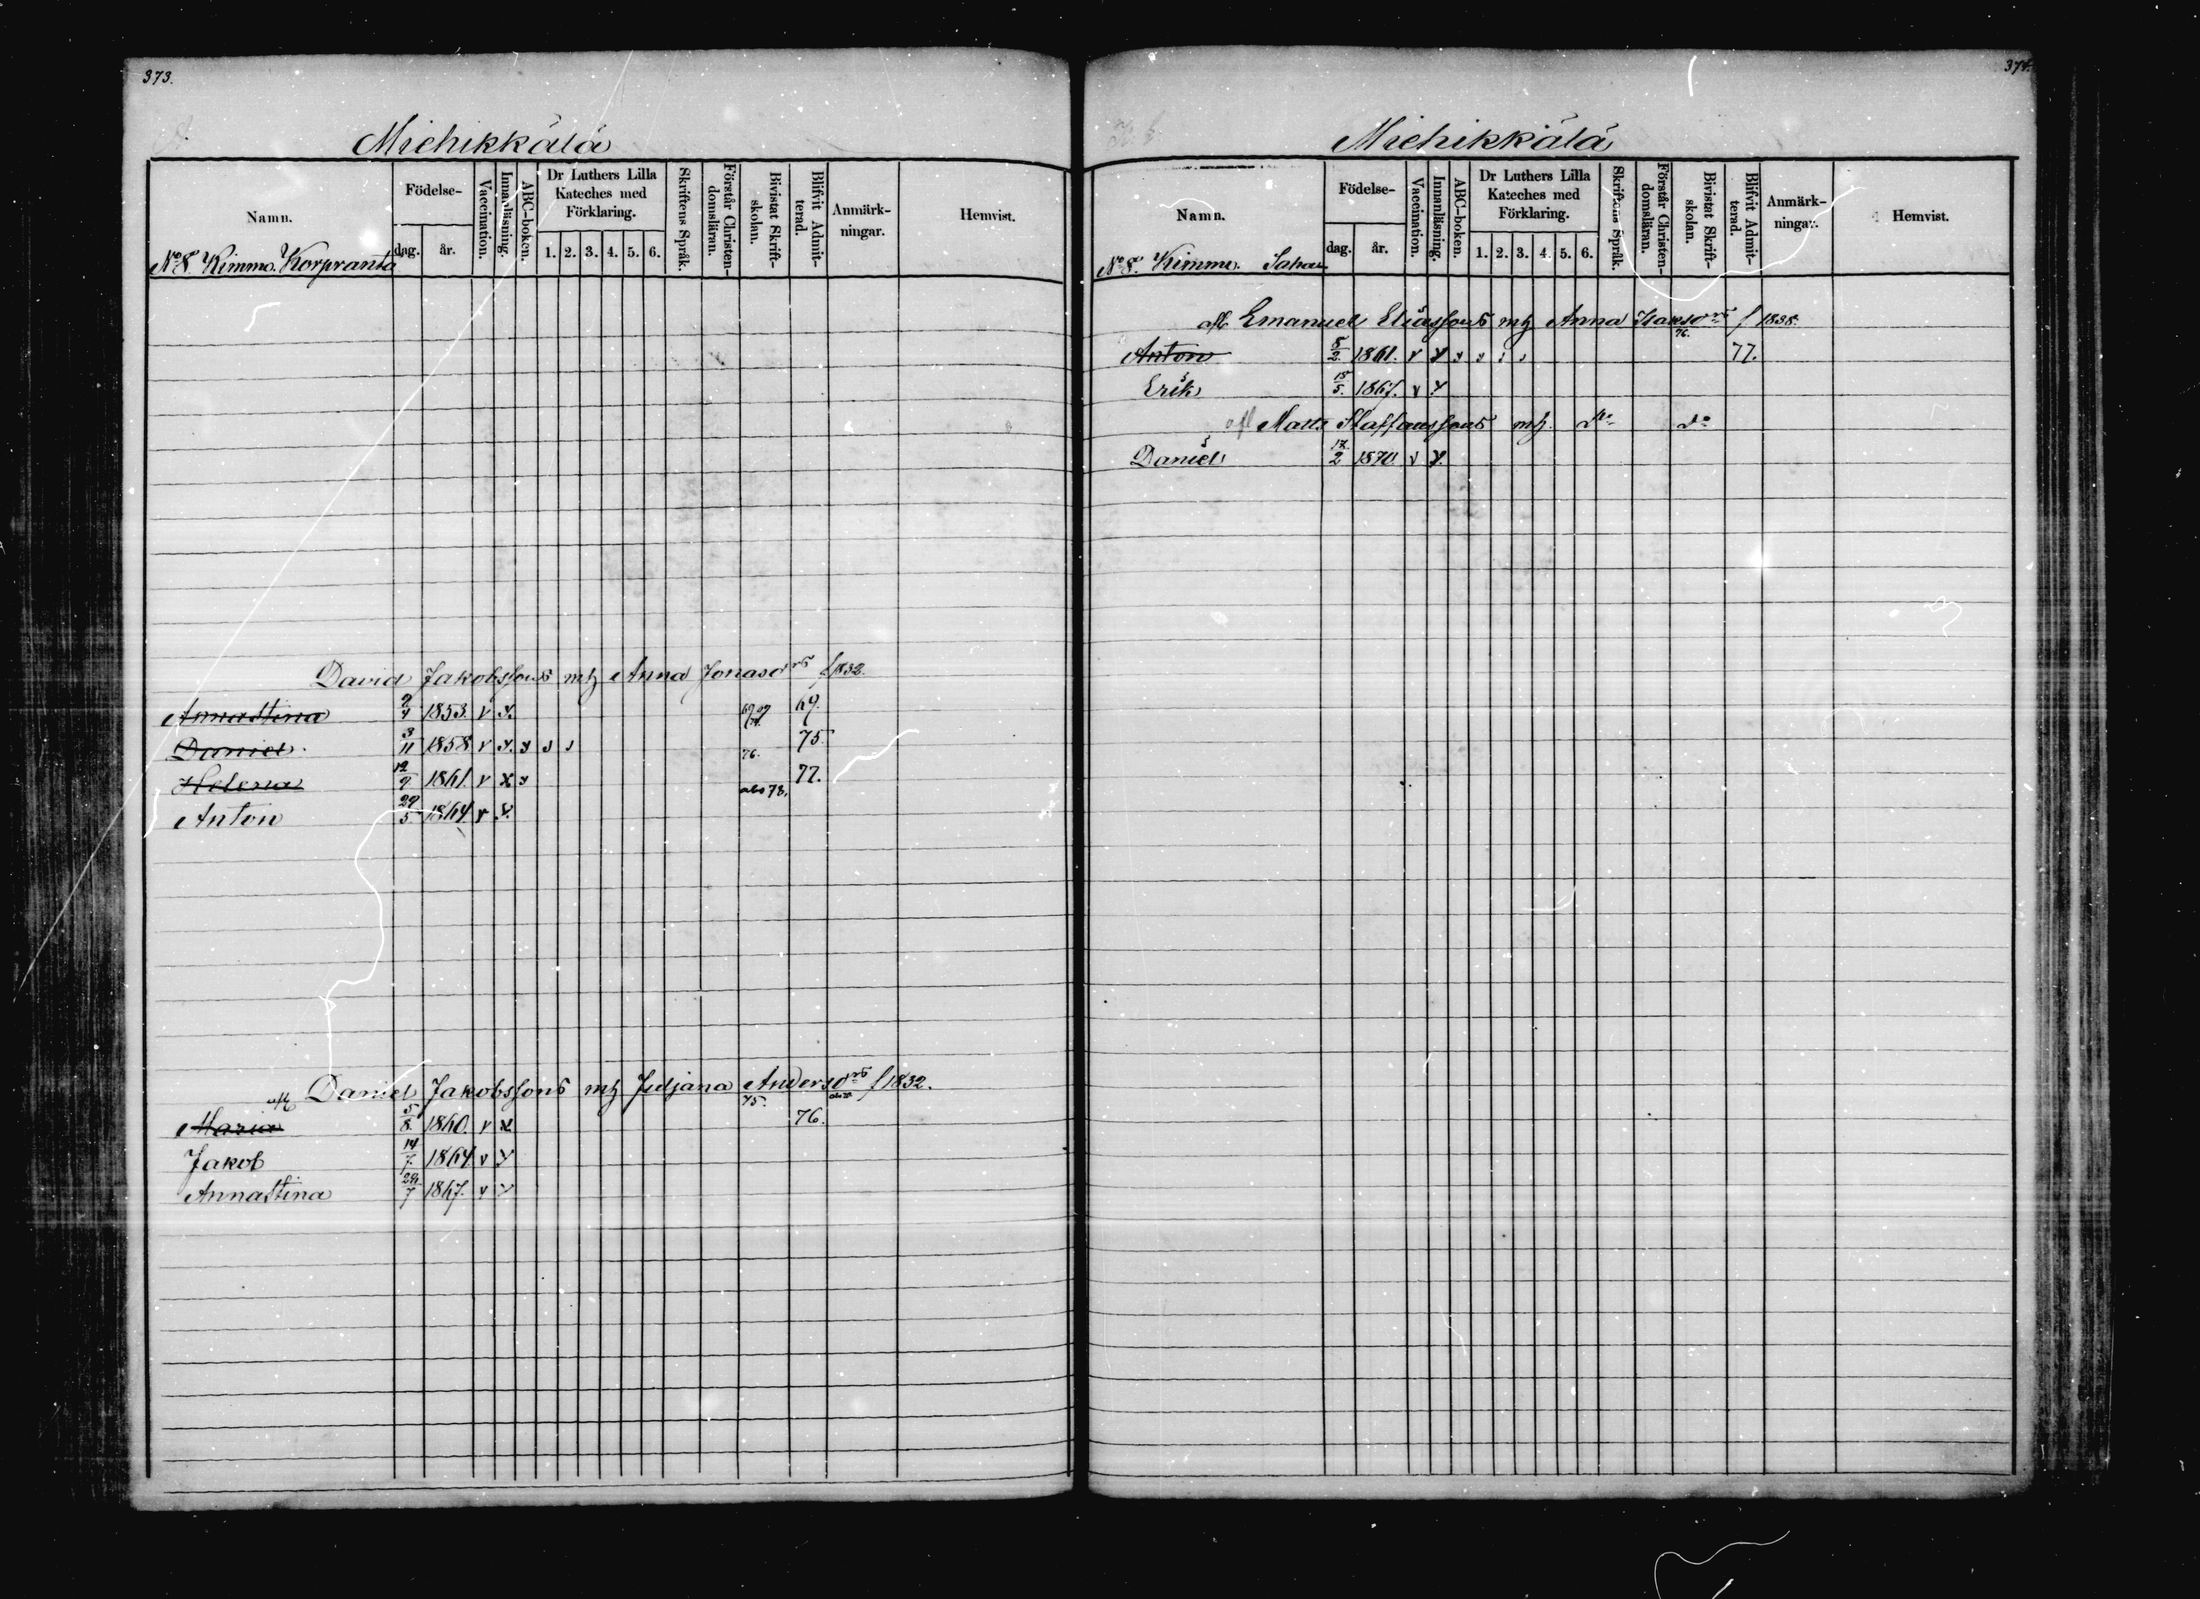 373.
Miehikkälä
Namn.
Födelse-
dag.
år.
Vaccination.
Innanläsning.
ABC-boken.
Dr Luthers Lilla Kateches med Förklaring.
1. 2. 3. 4. 5. 6.
Skriftens Språk.
Förstår Christendomsläran.
Bivistat Skriftskolan.
Blifvit Admitterad.
Anmärkningar.
Hemvist.
No 8. Kimmo. Korpranta
David Jakobssons mh Anna Jonasdrs f 1832.
Annastina 2/4 1853. v x. 69.
Daniel 3/11 1858 v x. 75
76.
Helena 12/9 1861. v x 77.
abs 78.
Anton 29/5 1864. v x.
afl Daniel Jakobssons mh Juljana Andersdrs f 1832.
75.
Maria 5/8. 1860. v x. 76.
Jakob 14/7. 1864 v
Annastina 28/7 1867. v
374.
Miehikkälä
Namn.
Födelse-
dag.
år.
Vaccination.
Innanläsning.
ABC-boken.
Dr Luthers Lilla Kateches med Förklaring.
1. 2. 3. 4. 5. 6.
Skriftens Språk.
Förstår Christendomsläran.
Bivistat Skriftskolan.
Blifvit Admitterad.
Anmärkningar.
Hemvist.
No 8. Kimmo.
afl Emanuel Eliassons mh Anna Isaksdrs f 1838.
76.
Anton 8/2. 1861. v 77.
Erik 15/5. 1867. v
afl Matts Staffanssons mh do do
Daniel 17/2 1870 v